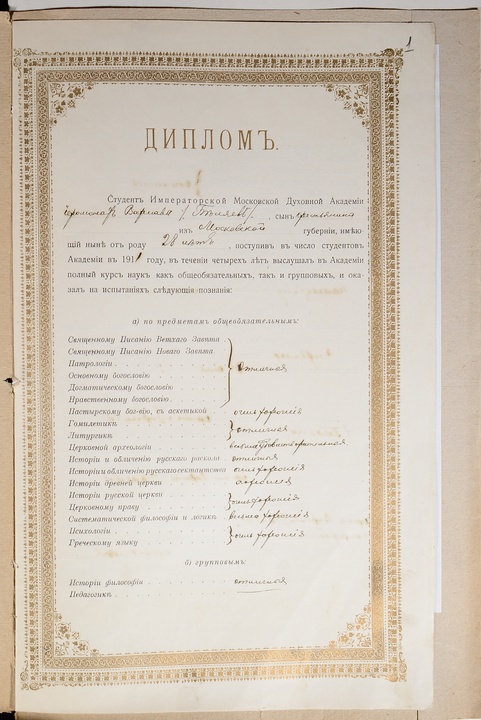 1
ДИПЛОМЪ.
Студентъ Императорской Московской Духовной Академіи
іеромонахъ Варнава /Бѣляевъ/, сынъ крестьянина
изъ Московской губерніи, имѣю-
щій нынѣ отъ роду 28 лѣтъ, поступивъ въ число студентовъ
Академіи въ 1911 году, въ теченіи четырехъ лѣтъ выслушалъ въ Академіи
полный курсъ наукъ какъ общеобязательныхъ, такъ и групповыхъ, и ока-
залъ на испытаніяхъ слѣдующія познанія:
а) по предметамъ общеобязательнымъ:
Священному Писанію Ветхаго Завѣта
Священному Писанію Новаго Завѣта
Патрологіи
Основному богословію отличныя
Догматическому богословію
Нравственному богословію
Пастырскому бог-вію, въ аскетикой очень хорошія
Гомилетикѣ
Литургикѣ отличныя
Церковной археологіи весьма удовлетворительныя
Исторіи и обличенію русскаго раскола отличныя
Исторіи и обличенію русскаго сектантства очень хорошія
Исторіи древней церкви хорошія
Исторіи русской церкви
Церковному праву очень хорошія
Систематической философіи и логикѣ весьма хорошія
Психологіи
Греческому языку очень хорошія
б) групповымъ:
Исторіи философіи отличныя
Педагогикѣ